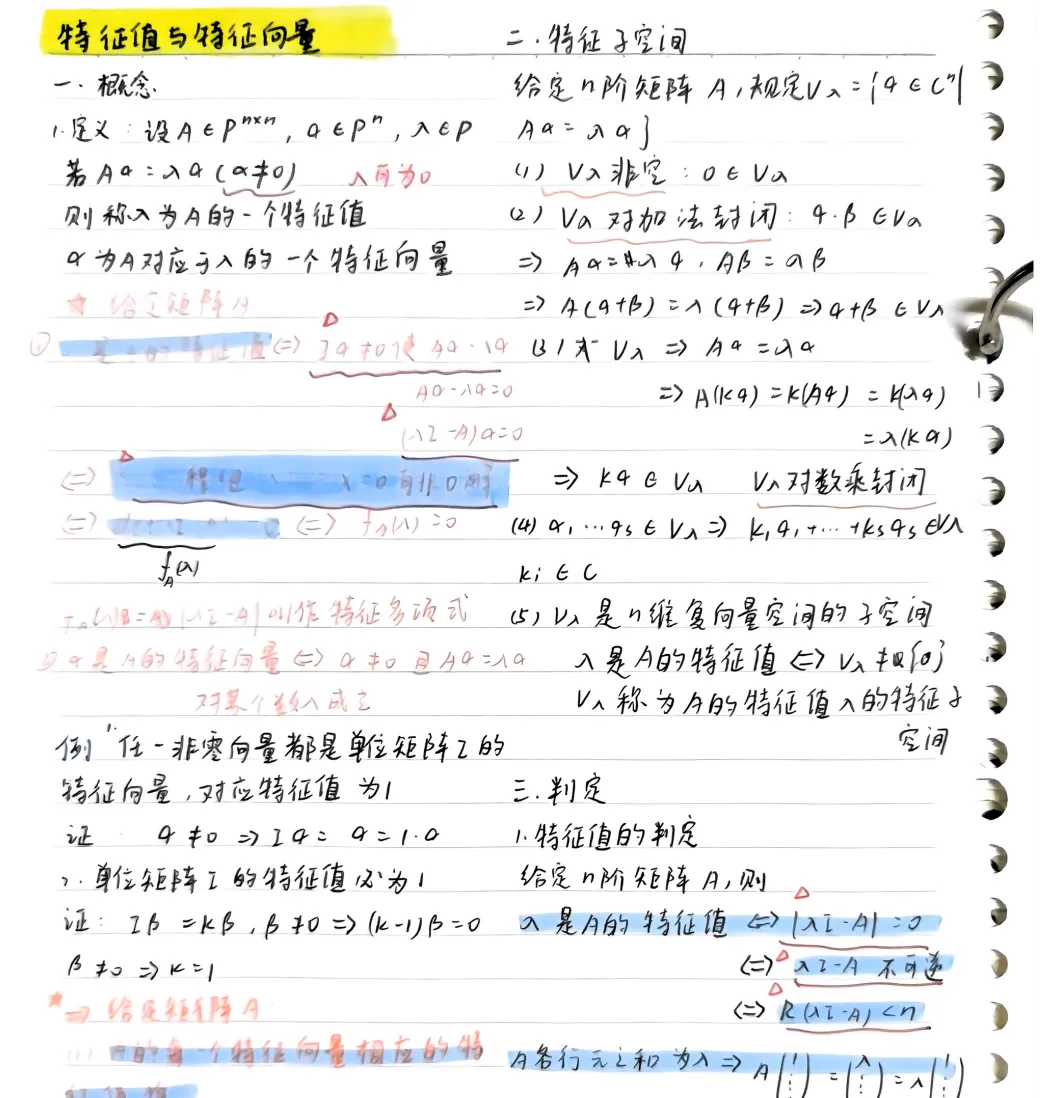 特征值与特征向量
一.概念.
1.定义:设A∈P^{n×n}, α∈P^n, λ∈P
若Aα=λα(α≠0) λ可为0
则称λ为A的一个特征值
α为A对应于λ的一个特征向量
★ 给定矩阵A
特征值 <=> ∃α≠0使 Aα=λα
Aα-λα=0
(λI-A)α=0
<=> =0有非0解
<=> <=> f_A(λ)=0
f_A(λ)
|λI-A|叫作特征多项式
② α是A的特征向量<=> α≠0且Aα=λα
对某个λ成立
例 1.任一非零向量都是单位矩阵I的
特征向量,对应特征值为1
证 α≠0 => Iα= α=1·α
2.单位矩阵I的特征值必为1
证: Iβ=kβ, β≠0 => (k-1)β=0
β≠0 => k=1
* => 给定矩阵A
的每一个特征向量相应的特
二.特征子空间
给定n阶矩阵A,规定V_λ={α∈C^n|
Aα=λα}
(1) V_λ非空:0∈V_λ
(2) V_λ对加法封闭:α.β∈V_λ
=> Aα=λα, Aβ=λβ
=> A(α+β)=λ(α+β) => α+β∈V_λ
(3) V_λ => Aα=λα
=> A(kα)=k(Aα)=k(λα)
=λ(kα)
=> kα∈V_λ V_λ对数乘封闭
(4) α₁…αs∈V_λ => k₁α₁+…+ksαs∈V_λ
ki∈C
(5) V_λ是n维复向量空间的子空间
λ是A的特征值<=> V_λ≠{0}
V_λ称为A的特征值λ的特征子
空间
三.判定
1.特征值的判定
给定n阶矩阵A,则
λ是A的特征值 <=> |λI-A|=0
<=> λI-A 不可逆
<=> R(λI-A)<n
A各行元之和为λ => A(1⋮)=(λ⋮)=λ(1⋮)